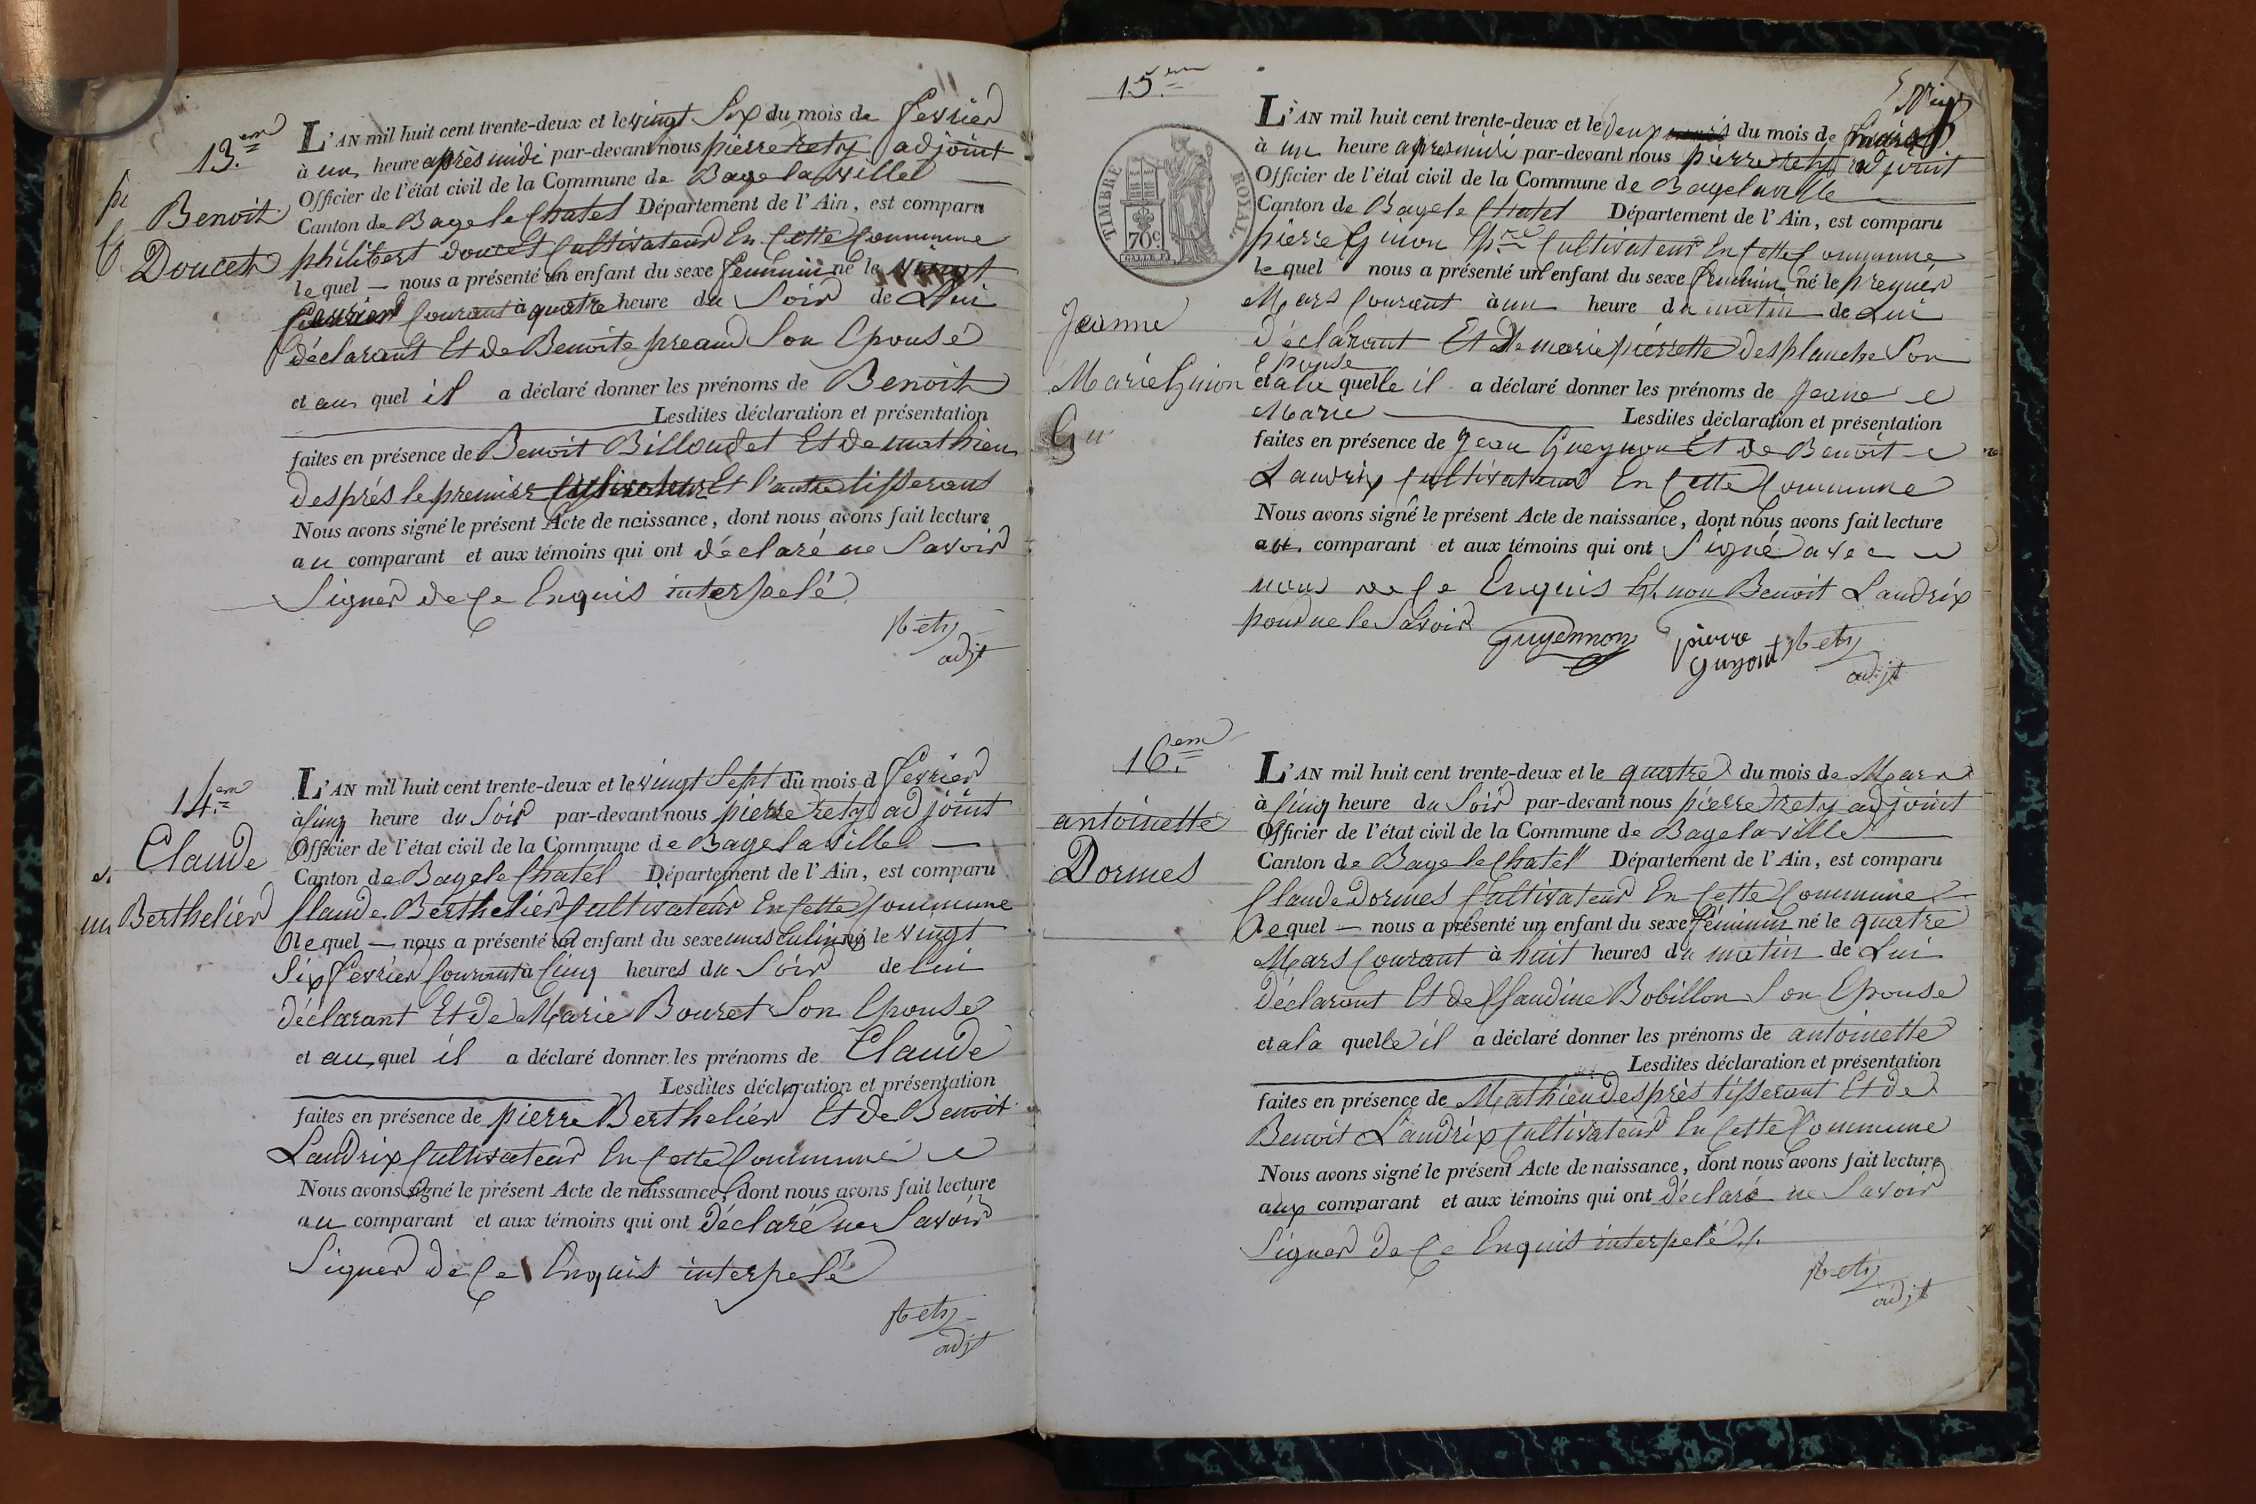 13.em
Benoit
Doucet
L'AN mil huit cent trente-deux et le vingt Six du mois de fevrier
à un heure après midi par-devant nous pierre rety adjoint
Officier de l'état civil de la Commune de Bage la ville
Canton de Bage le Chatel Département de l'Ain, est comparu
philibert doucet Cultivateur En Cette Commune
le quel — nous a présenté un enfant du sexe feminin né le vingt
fevrier Courant à quatre heure du Soir de Lui
déclarant Et de Benoite preaud Son Epouse
et au quel il a déclaré donner les prénoms de Benoit
Lesdites déclaration et présentation
faites en présence de Benoit Billoudet Et de mathieu
després le premier Cultivateur Et l'autre tisserant
Nous avons signé le présent Acte de naissance, dont nous avons fait lecture
au comparant et aux témoins qui ont déclaré ne Savoir
Signer de Ce Enquis interpelé
Rety
adjt
14.em
Claude
Berthelier
L'AN mil huit cent trente-deux et le vingt Sept du mois d fevrier
à Cinq heure du Soir par-devant nous pierre rety adjoint
Officier de l'état civil de la Commune de Bage la ville
Canton de Bage le Chatel Département de l'Ain, est comparu
Claude Berthelier Cultivateur En Cette Commune
le quel — nous a présenté un enfant du sexe masculin né le vingt
Six fevrier Courant à Cinq heures du Soir de lui
déclarant Et de Marie Bouret Son Epouse
et au quel il a déclaré donner les prénoms de Claude
Lesdites déclaration et présentation
faites en présence de pierre Berthelier Et de Benoit
Landrix Cultivateur En Cette Commune
Nous avons signé le présent Acte de naissance, dont nous avons fait lecture
au comparant et aux témoins qui ont déclaré ne Savoir
Signer de Ce Enquis interpelé
Rety
adjt
15.em
TIMBRE ROYAL
70c
Jeanne
Marie Guion
L'AN mil huit cent trente-deux et le deux du mois de mars
à un heure apres midi par-devant nous pierre rety adjoint
Officier de l'état civil de la Commune de Bage la ville
Canton de Bage le Chatel Département de l'Ain, est comparu
pierre Guion Cultivateur En Cette Commune
le quel nous a présenté un enfant du sexe feminin né le premier
Mars Courant à un heure du matin de Lui
déclarant Et de marie pierrette desplanche Son
Epouse
et a la quelle il a déclaré donner les prénoms de Jeane
Marie Lesdites déclaration et présentation
faites en présence de Jean Gueynon Et de Benoit
Landrix Cultivateur En Cette Commune
Nous avons signé le présent Acte de naissance, dont nous avons fait lecture
au comparant et aux témoins qui ont Signé avec
nous de Ce Enquis Et non Benoit Landrix
pour ne le Savoir
Guyennon pierre Rety
guyont adjt
16.em
antoinette
Dormes
L'AN mil huit cent trente-deux et le quatre du mois de Mars
à Cinq heure du Soir par-devant nous pierre rety adjoint
Officier de l'état civil de la Commune de Bage la ville
Canton de Bage le Chatel Département de l'Ain, est comparu
Claude Dormes Cultivateur En Cette Commune
le quel — nous a présenté un enfant du sexe féminin né le quatre
Mars Courant à huit heures du matin de Lui
déclarant Et de Claudine Bobillon Son Epouse
et a la quelle il a déclaré donner les prénoms de antoinette
Lesdites déclaration et présentation
faites en présence de Mathieu desprès tisserant Et de
Benoit Landrix Cultivateur En Cette Commune
Nous avons signé le présent Acte de naissance, dont nous avons fait lecture
aux comparant et aux témoins qui ont déclaré ne Savoir
Signer de Ce Enquis interpelé
Rety
adjt